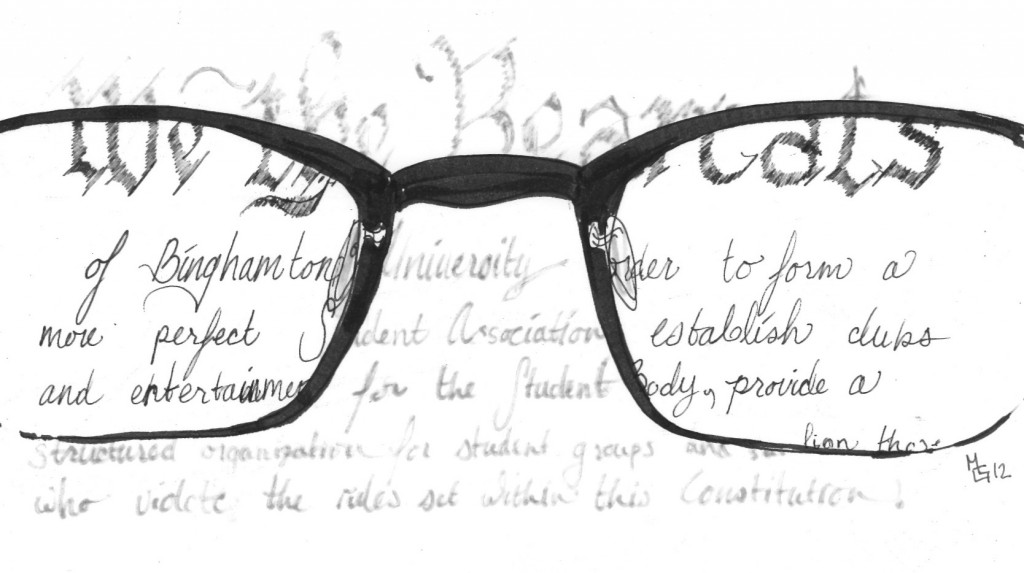 We the Bearcats
of Binghamton University order to form a
more perfect Student Association establish clubs
and entertainment for the Student Body, provide a
Structured organization for student groups and those
who violate the rules set within this Constitution!
MG12